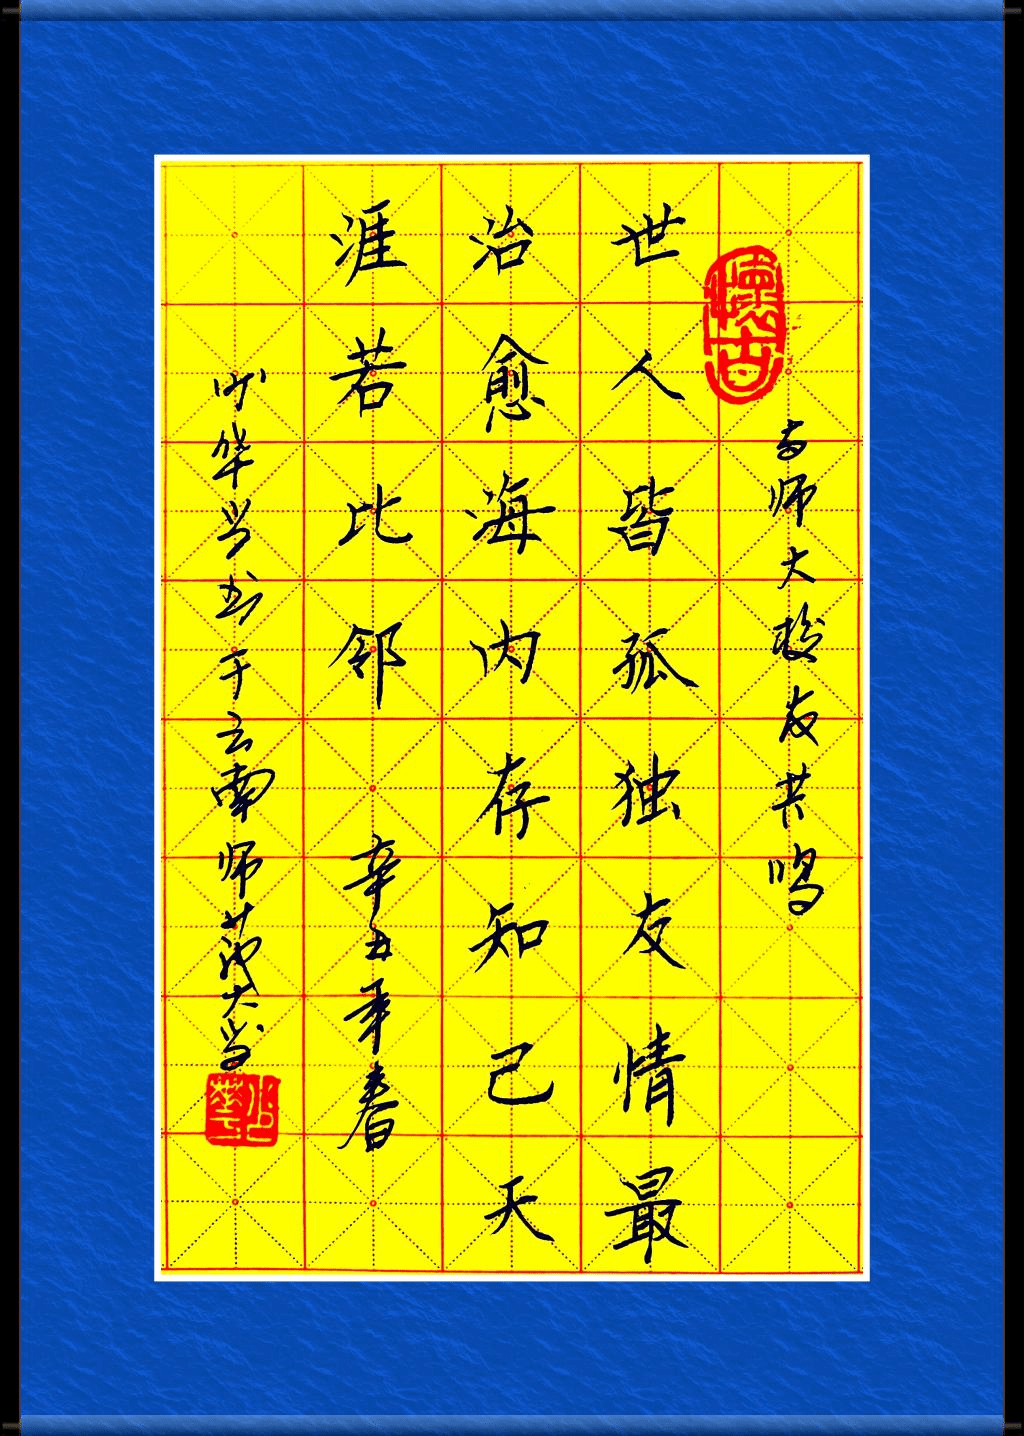 懷古
与师大校友共鸣
世人皆孤独友情最
治愈海内存知己天
涯若比邻
辛丑年春
华兴书于云南师范大学